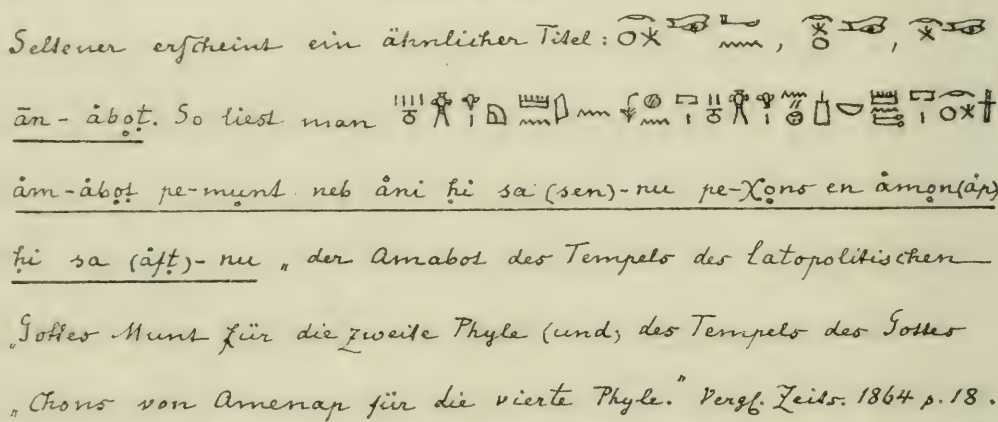 Seltener erscheint ein ähnlicher Titel: , ,
ān-àbọṭ. So liest man
àm-àbọṭ pe-munt neb àni ḥi sa (sen)-nu pe-Xọns en àmọn(àp)
ḥi sa (àfṭ)-nu „der Amabot des Tempels des latopolitischen
„Gottes Munt für die zweite Phyle (und) des Tempels des Gottes
„Chons von Amenap für die vierte Phyle.” Vergl. Zeits. 1864 p. 18.